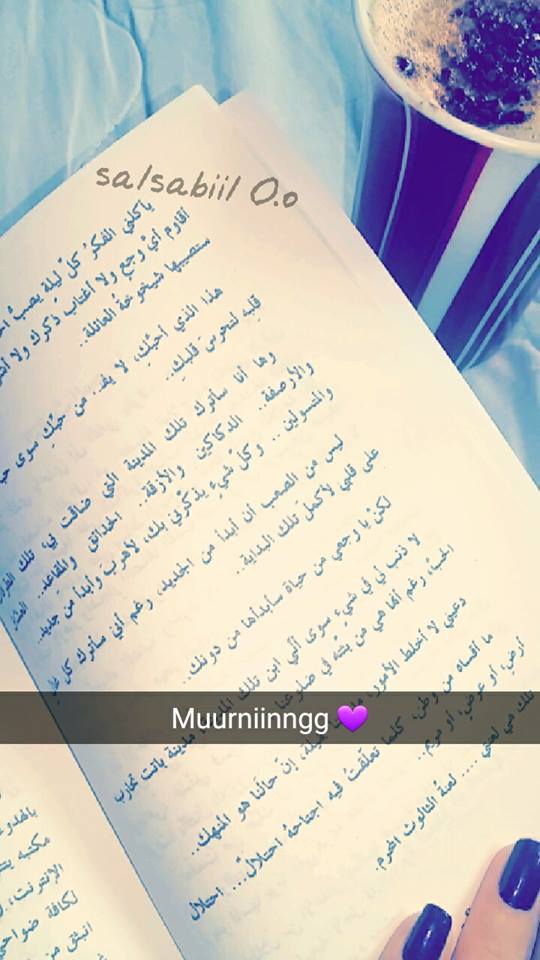 salsabiil O.o
يأكلني الفكرُ كلّ ليلة يصبُّ
أقاوم أيّ وجعٍ ولا أعتاب ذكرك ولا
ستصيبها شيخوخةُ العائلة..
هذا الذي أحبّكِ، لا يفد.. من حبّكِ سوى
قلبه لتحرسَ قلبكِ..
وها أنا سأترك تلك المدينة التي ضاقت بي، تلك
والأرصفة.. الدكاكين والأزقة.. الحدائق والمقاعد..
والمتسولين.. وكلّ شيءٍ يذكّرني بك، لأهرب وأبدأ من جديد..
ليس من الصعب أن أبدأ من الجديد، رغم أني سأترك كل
على قلبي لأكمل تلك البداية..
لكنْ يا وجعي من حياة سأبدأها من دونك..
لا ذنب لي في شيءٍ سوى أنّي ابن تلك
الحبّ، رغم أنّها هي من بثته في ضلوعنا مدينة باتت تحارب
دعيني لا أختلط الأمور، إنّ حالنا هو المنهك..
ما أقساه من وطن، كلما تعلّقتُ فيه اجتاحهُ احتلالٌ... احتلال
أرضٍ، أو عرضٍ، أو مريم..
تلك هي لعبتي .... لعبة الثالوث المحرم.
Muurniinngg 💜
مكتبه
الإنترنت،
لكافة
انبثق من